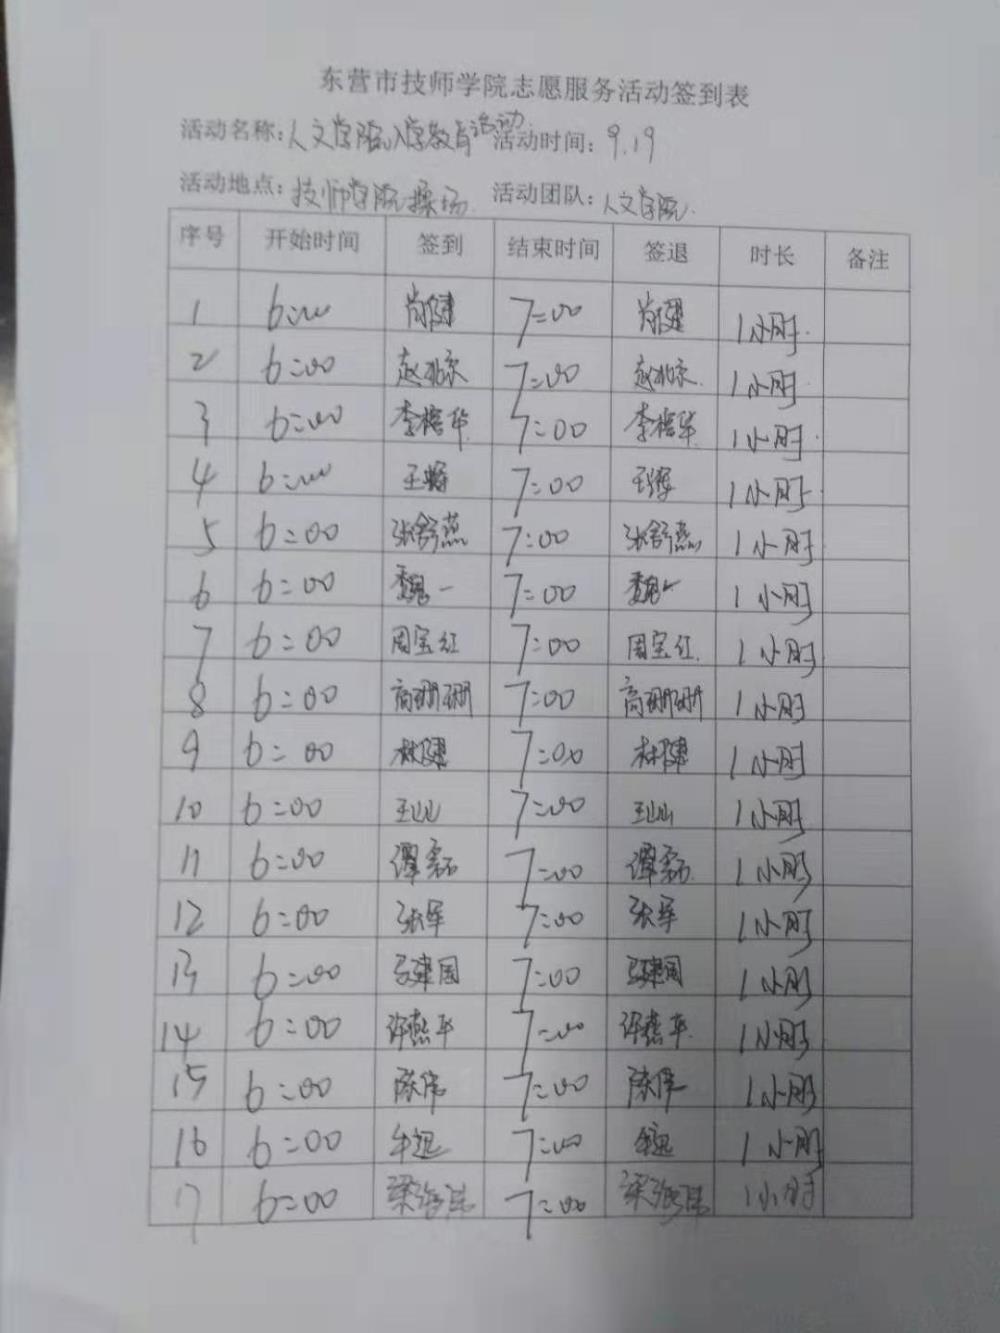 东营市技师学院志愿服务活动签到表
活动名称:人文学院入学教育活动 活动时间: 9.19
活动地点: 技师学院操场 活动团队: 人文学院
序号 开始时间 签到 结束时间 签退 时长 备注
1 6:00 7:00 1小时
2 6:00 赵 7:00 赵 1小时
3 6:00 李 华 7:00 李 华 1小时
4 6:00 王 7:00 王 1小时
5 6:00 张舒燕 7:00 张舒燕 1小时
6 6:00 魏一 7:00 魏一 1小时
7 6:00 周宝红 7:00 周宝红 1小时
8 6:00 高珊珊 7:00 高珊珊 1小时
9 6:00 林健 7:00 林健 1小时
10 6:00 王山山 7:00 王山山 1小时
11 6:00 谭磊 7:00 谭磊 1小时
12 6:00 张军 7:00 张军 1小时
13 6:00 建国 7:00 建国 1小时
14 6:00 许燕平 7:00 许燕平 1小时
15 6:00 陈伟 7:00 陈伟 1小时
16 6:00 7:00 1小时
17 6:00 梁海伟 7:00 梁海伟 1小时